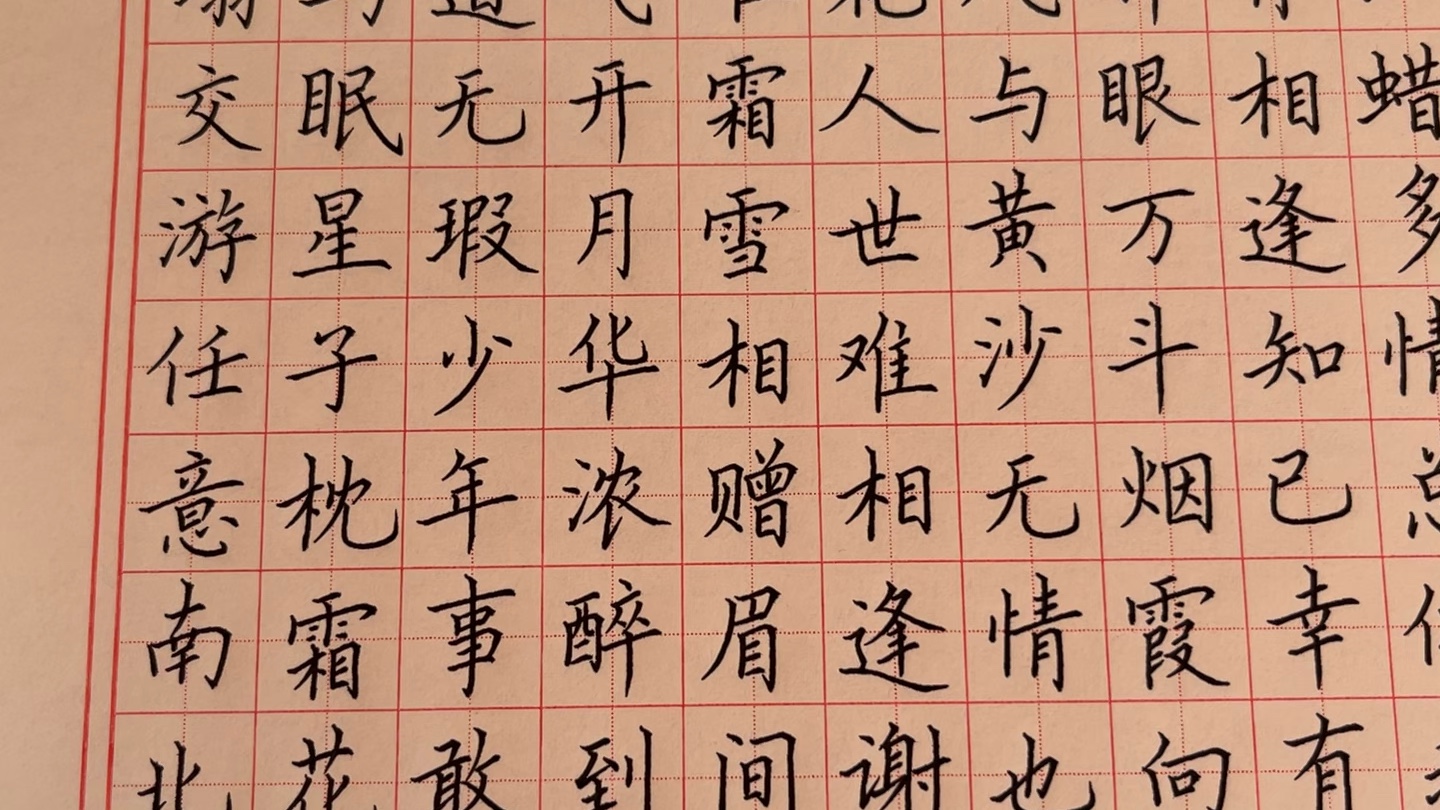 蜡多情总
相逢知己幸有
眼万斗烟霞向
与黄沙无情也
人世难相逢谢
霜雪相赠眉间
开月华浓醉到
无瑕少年事敢
眠星子枕霜花
交游任意南北